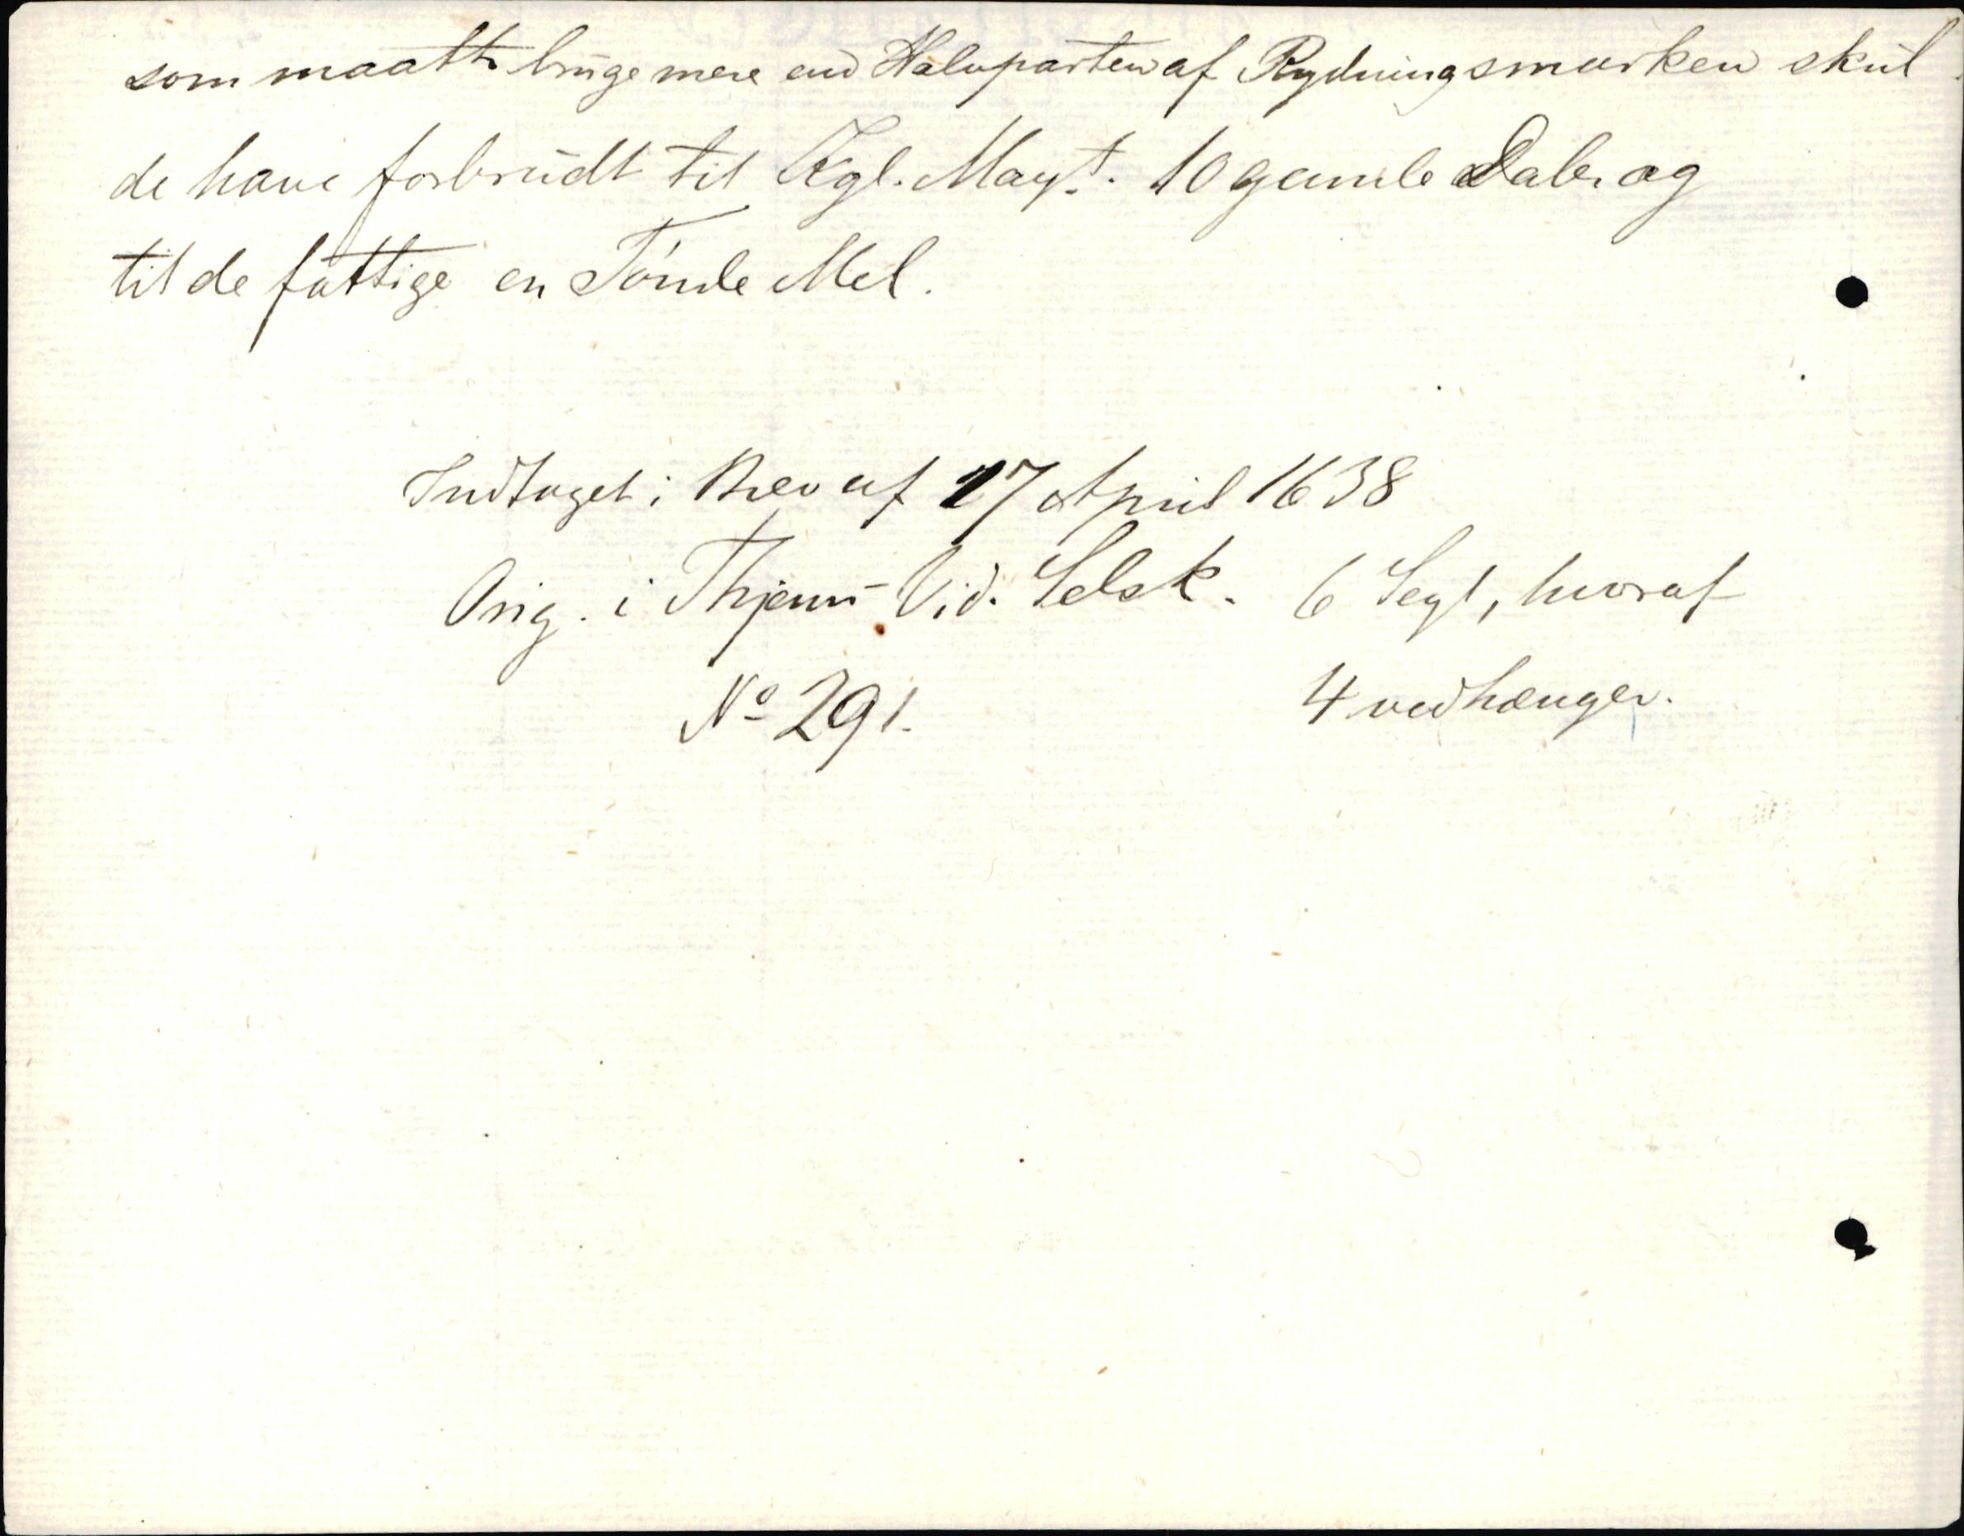 som maatte bruge mere end Halvparten af Rydningsmarken skul
de have forbrudt til Kgl. Mayt. 10 gamle Daler og
til de fattige en Tønde Mel.
Indtaget i Brev af 27 April 1638
Orig. i Thjems Vid. Selsk. 6 Segl, hvoraf
No 291. 4 vedhænger.